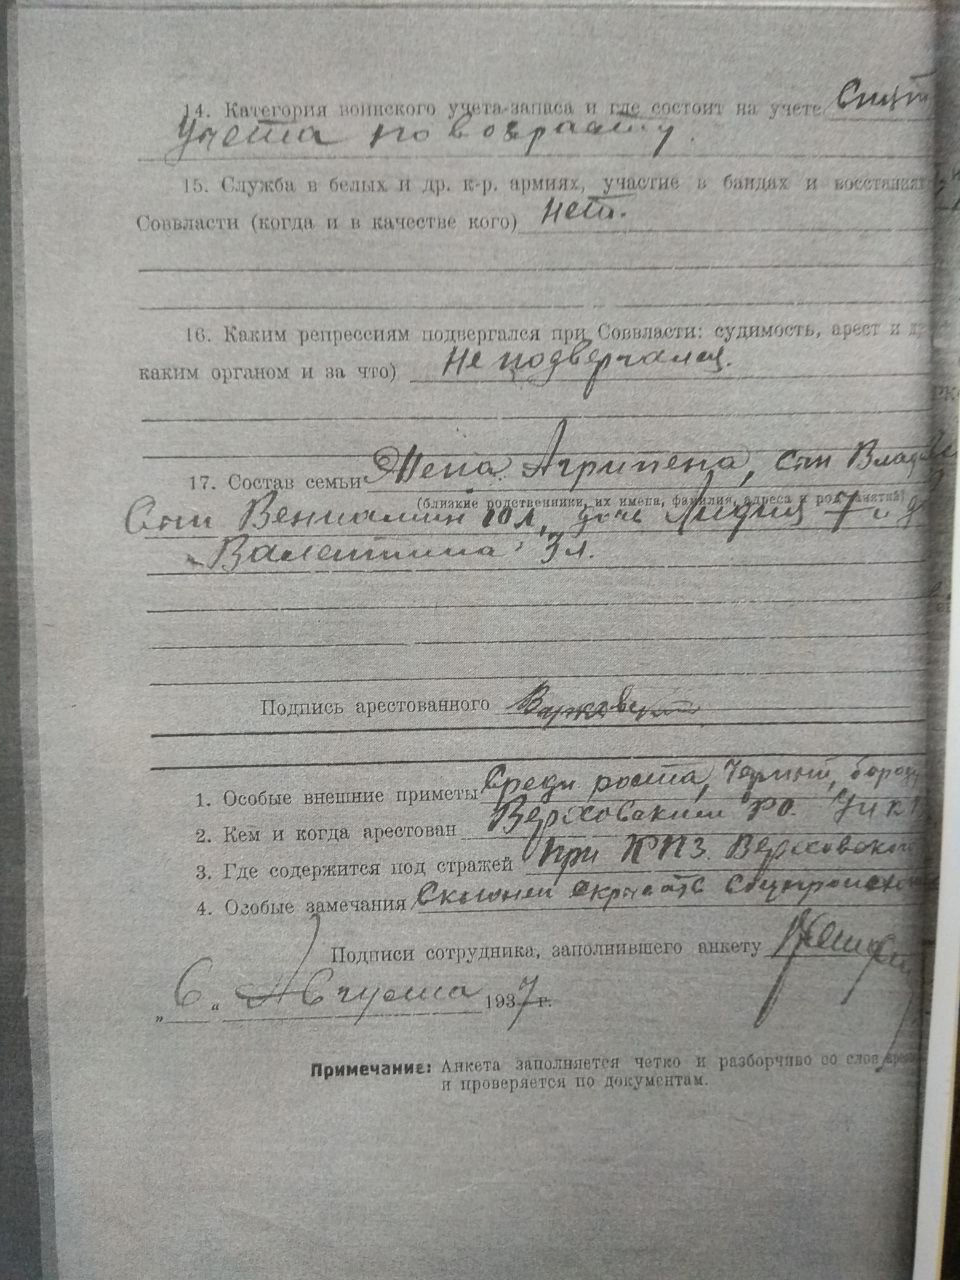 14. Категория воинского учета-запаса и где состоит на учете Снят
Учета по возрасту.
15. Служба в белых и др. к-р. армиях, участие в бандах и восстаниях
Соввласти (когда и в качестве кого) Нет.
16. Каким репрессиям подвергался при Соввласти: судимость, арест и д
каким органом и за что) Не подвергался.
17. Состав семьи Жена Агрипена, сын Влад
(близкие родственники, их имена, фамилия, адреса и род занятий)
Сын Вениамин 10 л, дочь Лидия 7 л. д
Валентина 3 л.
Подпись арестованного
1. Особые внешние приметы Средн роста, Черный, бород
2. Кем и когда арестован Верховским РО. УНКВ
3. Где содержится под стражей При КПЗ. Верховском
4. Особые замечания Склонен скрывать Соцпроисхожд
Подписи сотрудника, заполнившего анкету
„ 6 “ Августа 1937 г.
Примечание: Анкета заполняется четко и разборчиво со слов арес
и проверяется по документам.